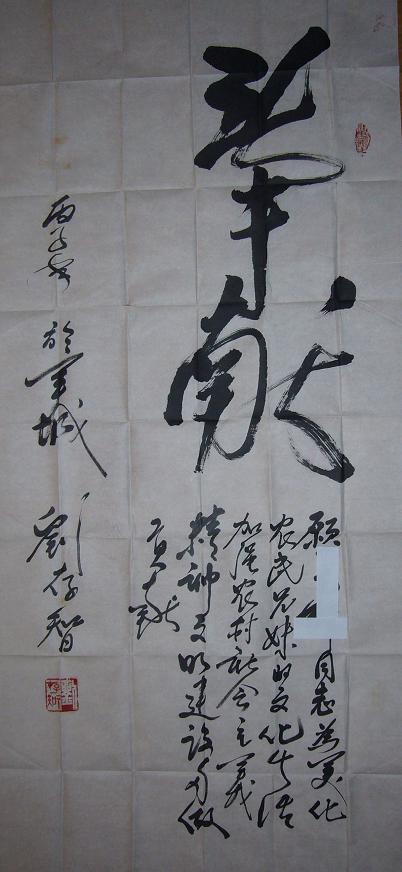 奉献
愿同志为美化
农民兄妹的文化生活
加深农村社会主义
精神文明建设多做
贡献
丙子冬
於军城
劉存智